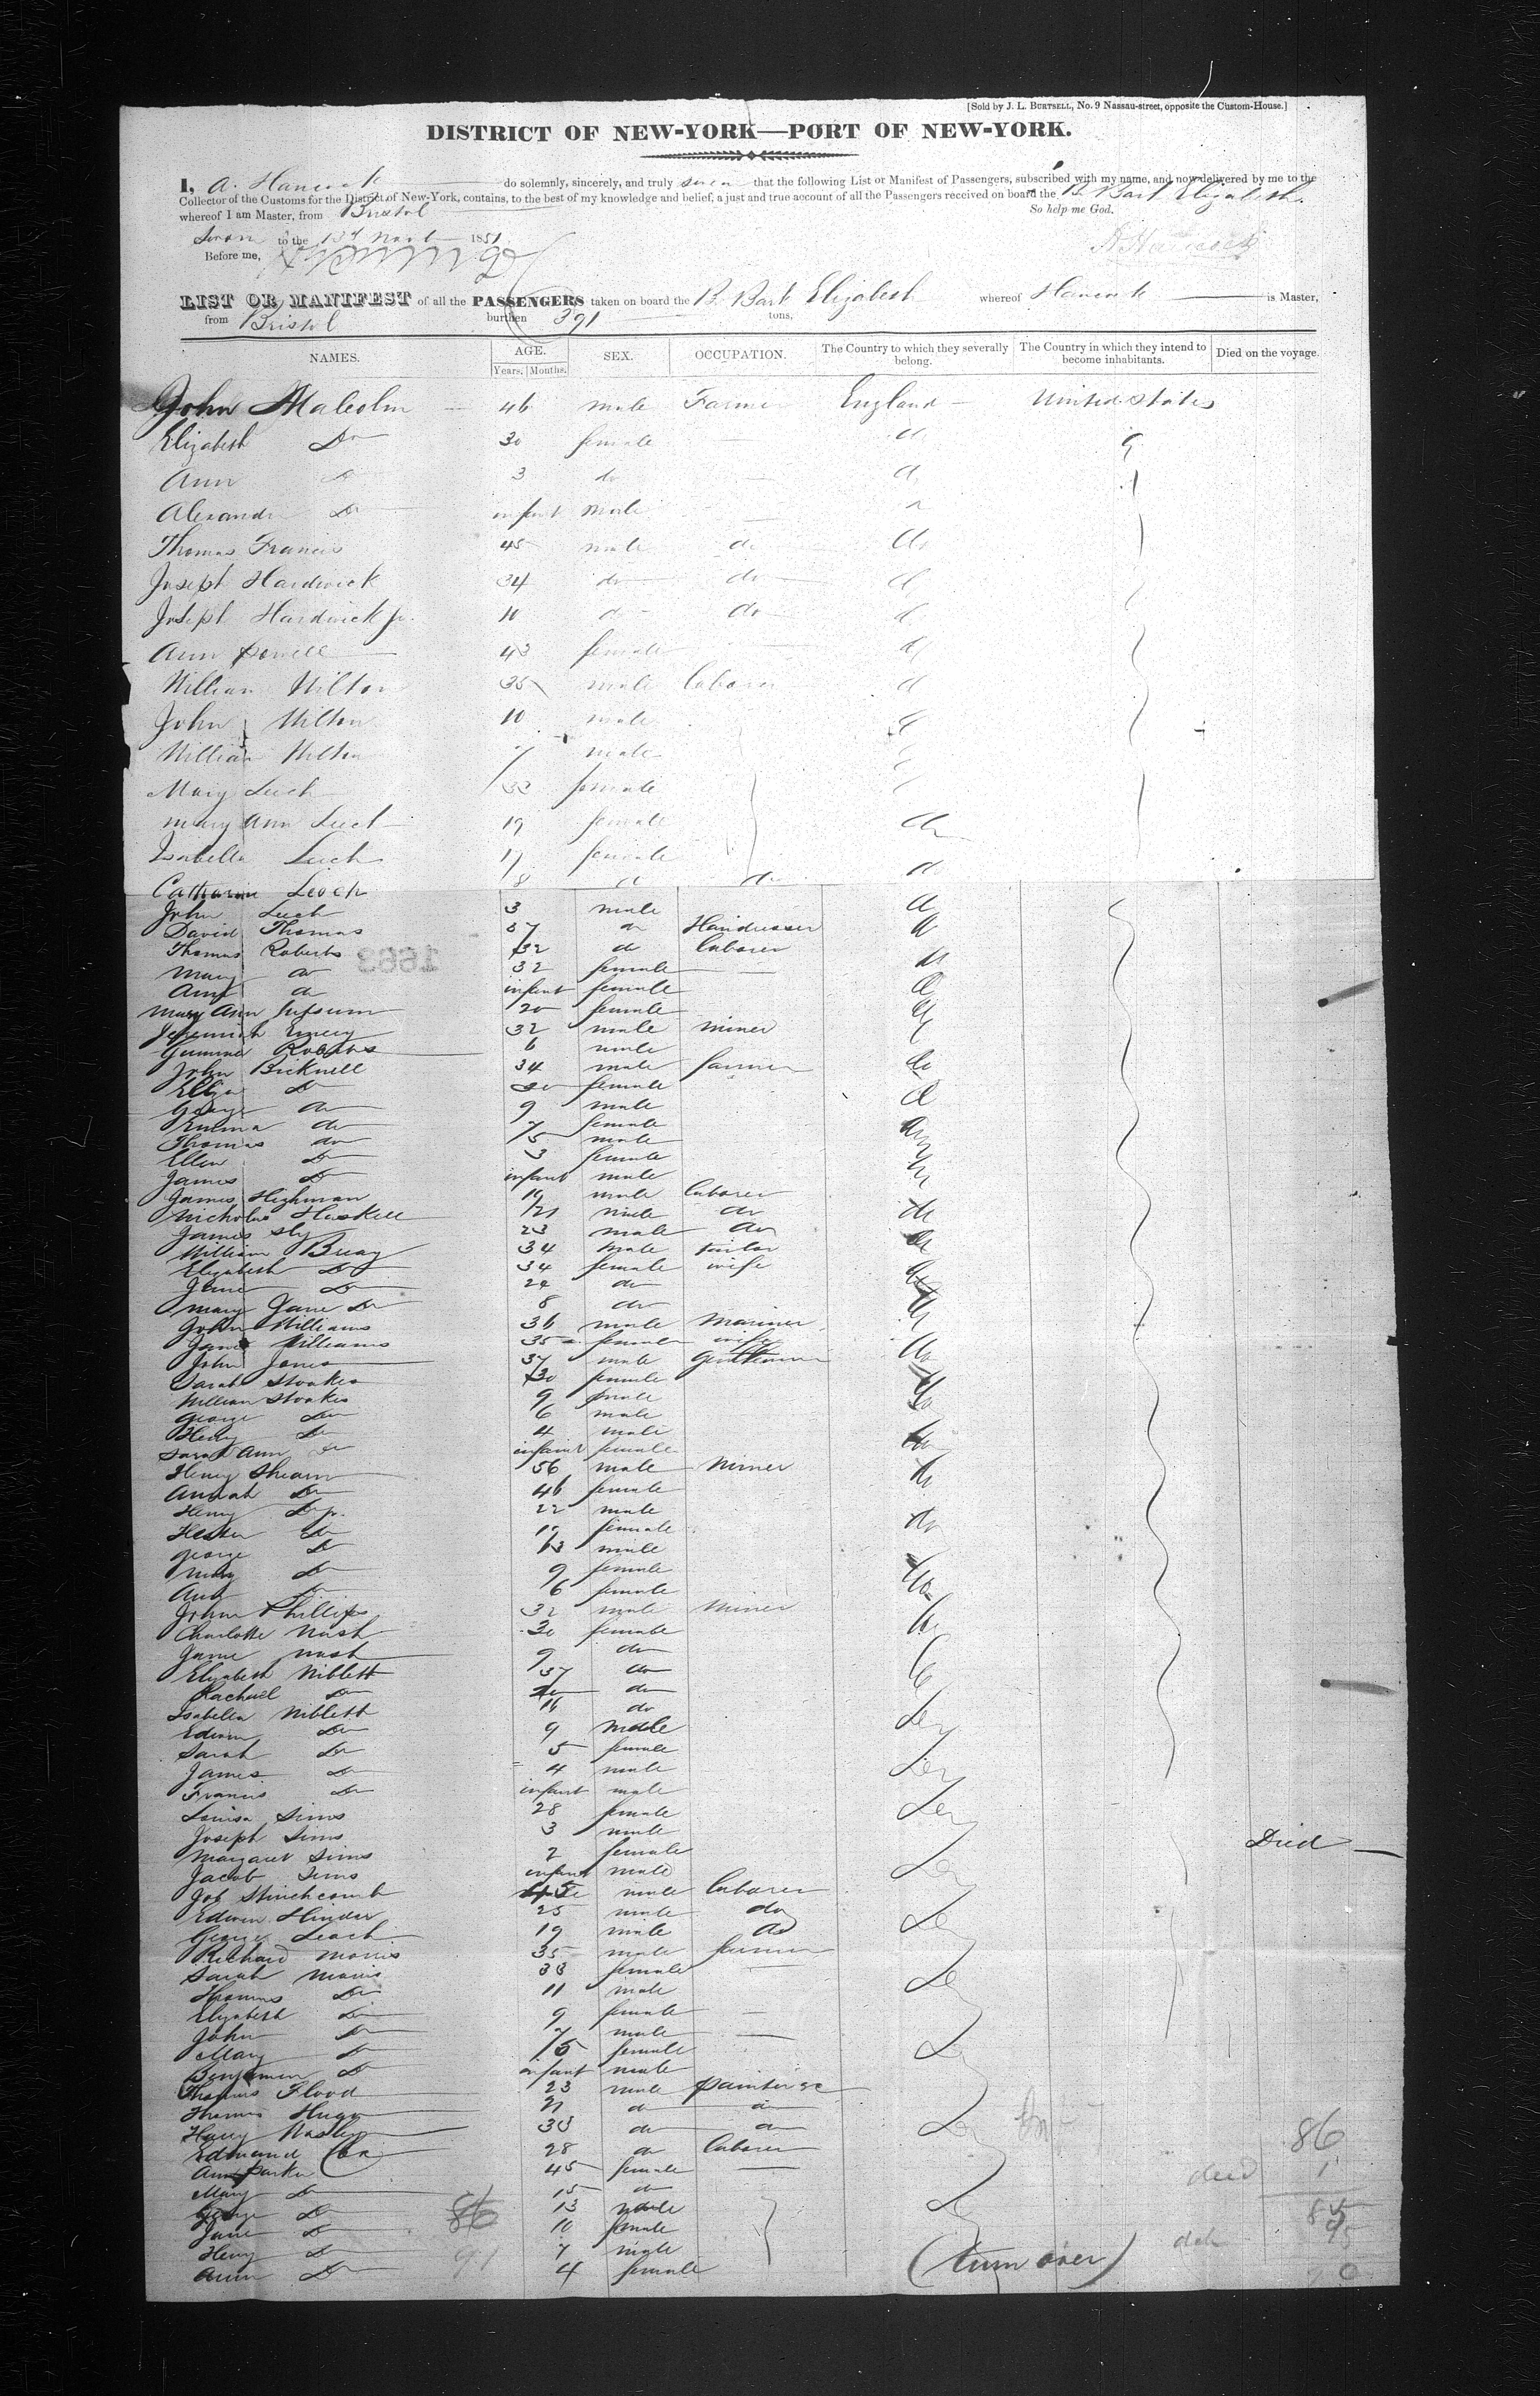 [Sold by J. L. BURTSELL, No. 9 Nassau-street, opposite the Custom-House.]
DISTRICT OF NEW-YORK—PORT OF NEW-YORK.
I, A. Hancock do solemnly, sincerely, and truly swear that the following List or Manifest of Passengers, subscribed with my name, and now delivered by me to the
Collector of the Customs for the District of New-York, contains, to the best of my knowledge and belief, a just and true account of all the Passengers received on board the B. Bark Elizabeth.
whereof I am Master, from Bristol So help me God.
Sworn to the 1851
Before me,
LIST OR MANIFEST of all the PASSENGERS taken on board the B. Bark Elizabeth whereof Hancock is Master,
from Bristol burthen 391 tons,
NAMES. AGE. SEX. OCCUPATION. The Country to which they severally belong. The Country in which they intend to become inhabitants. Died on the voyage.
Years. Months.
John Malcolm 46 male Farmer England United States
Elizabeth Do 30 female
Ann Do 3 do
Alexander Do infant male
Thomas Francis 45 male do do
Joseph Hardwick 34 do do
Joseph Hardwick jr. 10 do do
Ann Powell 43 female
William Hilton 35 male laborer
John Hilton 10 male
William Hilton 7 male
Mary Leech 33 female
Mary Ann Leech 19 female do
Isabella Leech 17 female
Catharine Leech 8 do do do
John Leech 3 male
David Thomas 37 do Hairdresser
Thomas Roberts 32 do laborer
Mary do 32 female
Amy do infant female
Mary Ann 20 female
Jeremiah Emery 32 male miner
Roberts 6 male
John Bicknell 34 male farmer do
Eliza Do 30 female
George do 9 male
Emma do 7 female
Thomas do 5 male
Ellen Do 3 female
James Do infant male
James Highman 19 male laborer
Nicholas Haskell 21 male do
James Sly 23 male do
William Bray 34 male tailor
Elizabeth Do 34 female wife
Jane Do 24 do
Mary Jane Do 8 do
John Williams 36 male mariner
Jane Williams 35 female wife
John Jones 37 male gentleman
Sarah Stoakes 30 female
William Stoakes 9 male
George Do 6 male
Henry Do 4 male
Sarah Ann Do infant female
Henry Shearn 56 male miner
Annah Do 46 female
Henry Do jr. 22 male
Hester Do 19 female
George Do 13 male
Mary Do 9 female
Ann Do 6 female
John Phillips 32 male miner
Charlotte Nash 30 female
Jane Nash 9 do
Elizabeth Niblett 37 do
Rachael Do do
Isabella Niblett 16 do
Edwin Do 9 male
Sarah Do 5 female
James Do 4 male
Francis Do infant male
Louisa Sims 28 female
Joseph Sims 3 male Died
Margaret Sims 2 female
Jacob Sims infant male
Job Stinchcomb 45 male laborer
Edwin Hinder 25 male do
George Leach 19 male do
Richard Morris 35 male farmer
Sarah Morris 33 female
Thomas Do 11 male
Elizabeth Do 9 female
John Do 7 male
Mary Do 5 female
Benjamin Do infant male
Thomas Flood 23 male painter &c
Thomas Hugo 21 do do
Harry 33 do do
Edmund 28 do laborer
Ann Parker 45 female
Mary Do 15 do
George Do 13 male
Jane Do 10 female
Henry Do 7 male
Ann Do 4 female
86
died 1
85
(turn over)
86
91